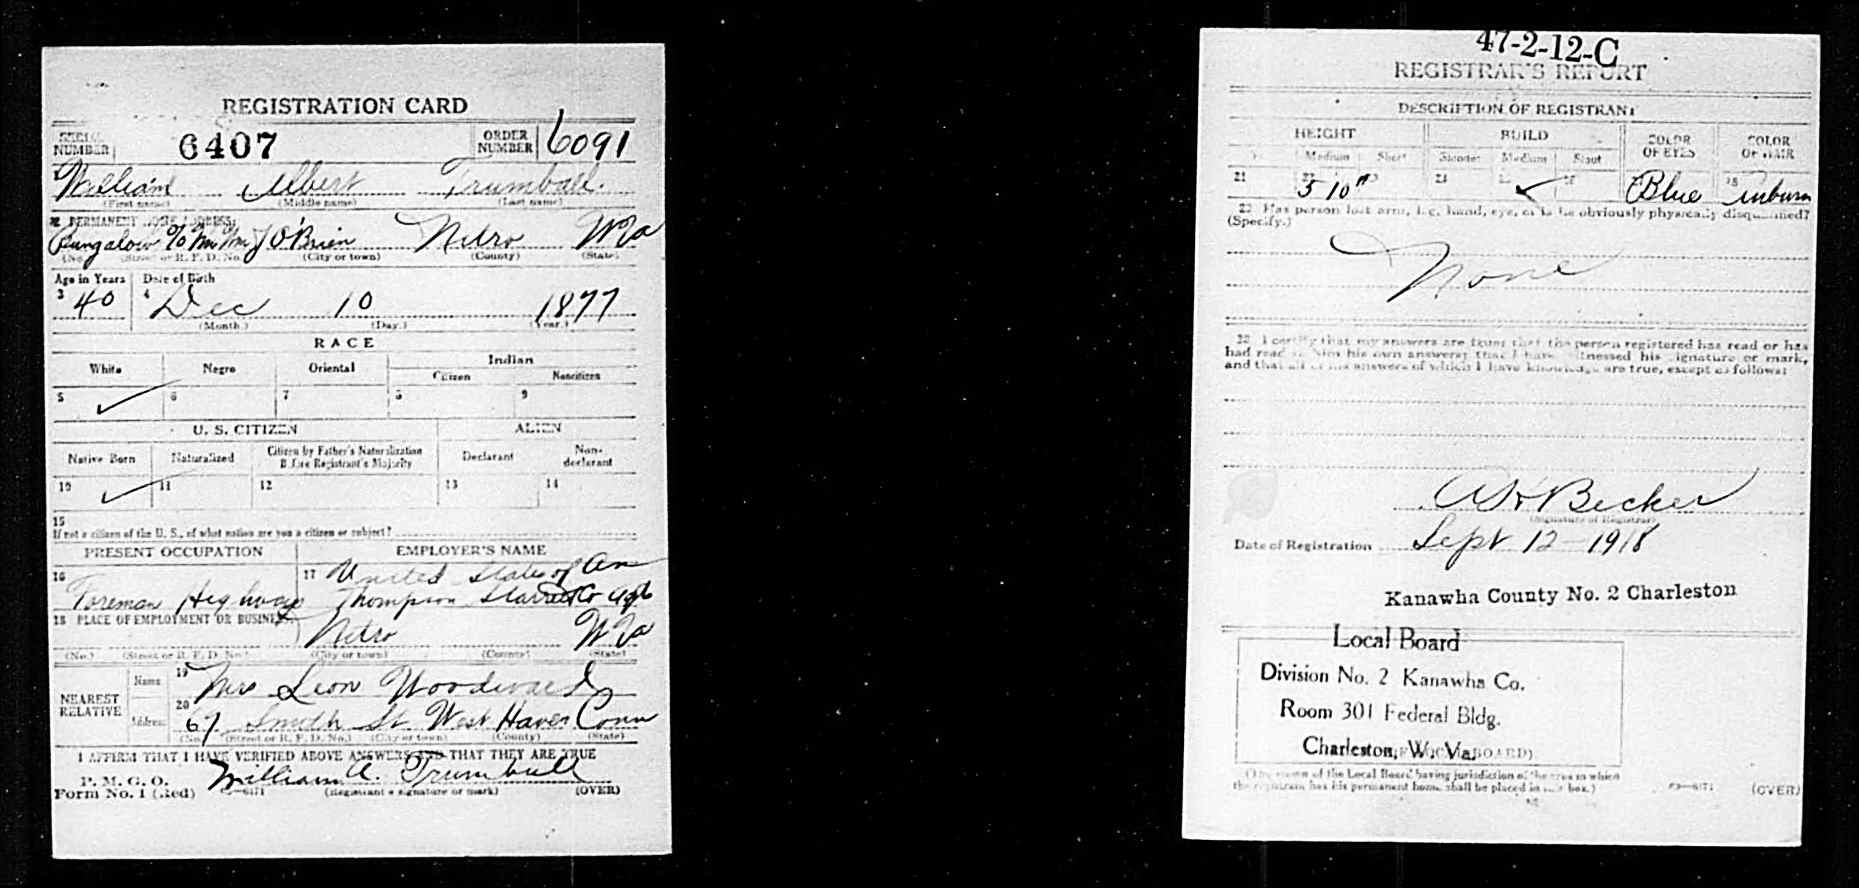 REGISTRATION CARD
SERIAL NUMBER 6407 ORDER NUMBER 6091
William Albert Trumbull.
(First name) (Middle name) (Last name)
2 PERMANENT HOME ADDRESS:
Bungalow c/o Mr Wm J O'Brien Nitro W Va
(No.) (Street or R. F. D. No.) (City or town) (County) (State)
Age in Years Date of Birth
3 40 4 Dec 10 1877
(Month.) (Day.) (Year.)
RACE
White Negro Oriental Indian
Citizen Noncitizen
5 ✓ 6 7 8 9
U. S. CITIZEN ALIEN
Native Born Naturalized Citizen by Father's Naturalization Before Registrant's Majority Declarant Non-declarant
10 ✓ 11 12 13 14
15
If not a citizen of the U. S., of what nation are you a citizen or subject?
PRESENT OCCUPATION EMPLOYER'S NAME
16 Foreman Highways 17 United States of Am
Thompson Starrett Co Agt
18 PLACE OF EMPLOYMENT OR BUSINESS:
Nitro W Va
(No.) (Street or R. F. D. No.) (City or town) (County) (State)
NEAREST RELATIVE Name 19 Mrs Leon Woodward
Address 20 67 Smith St West Haven Conn
(No.) (Street or R. F. D. No.) (City or town) (County) (State)
I AFFIRM THAT I HAVE VERIFIED ABOVE ANSWERS AND THAT THEY ARE TRUE
P. M. G. O.
Form No. 1 (Red) William A. Trumbull
(Registrant's signature or mark) (OVER)
47-2-12-C
REGISTRAR'S REPORT
DESCRIPTION OF REGISTRANT
HEIGHT BUILD COLOR OF EYES COLOR OF HAIR
Medium Short Slender Medium Stout
21 22 5 10" 23 24 ✓ Blue Auburn
29 Has person lost arm, leg, hand, eye, or is he obviously physically disqualified?
(Specify.)
None
30 I certify that my answers are true; that the person registered has read or has
had read to him his own answers; that I have witnessed his signature or mark,
and that all of his answers of which I have knowledge are true, except as follows:
Becker
(Signature of Registrar)
Date of Registration Sept 12-1918
Kanawha County No. 2 Charleston
Local Board
Division No. 2 Kanawha Co.
Room 301 Federal Bldg.
Charleston, W. Va.
(The stamp of the Local Board having jurisdiction of the area in which
the registrant has his permanent home shall be placed in this box.)
(OVER)